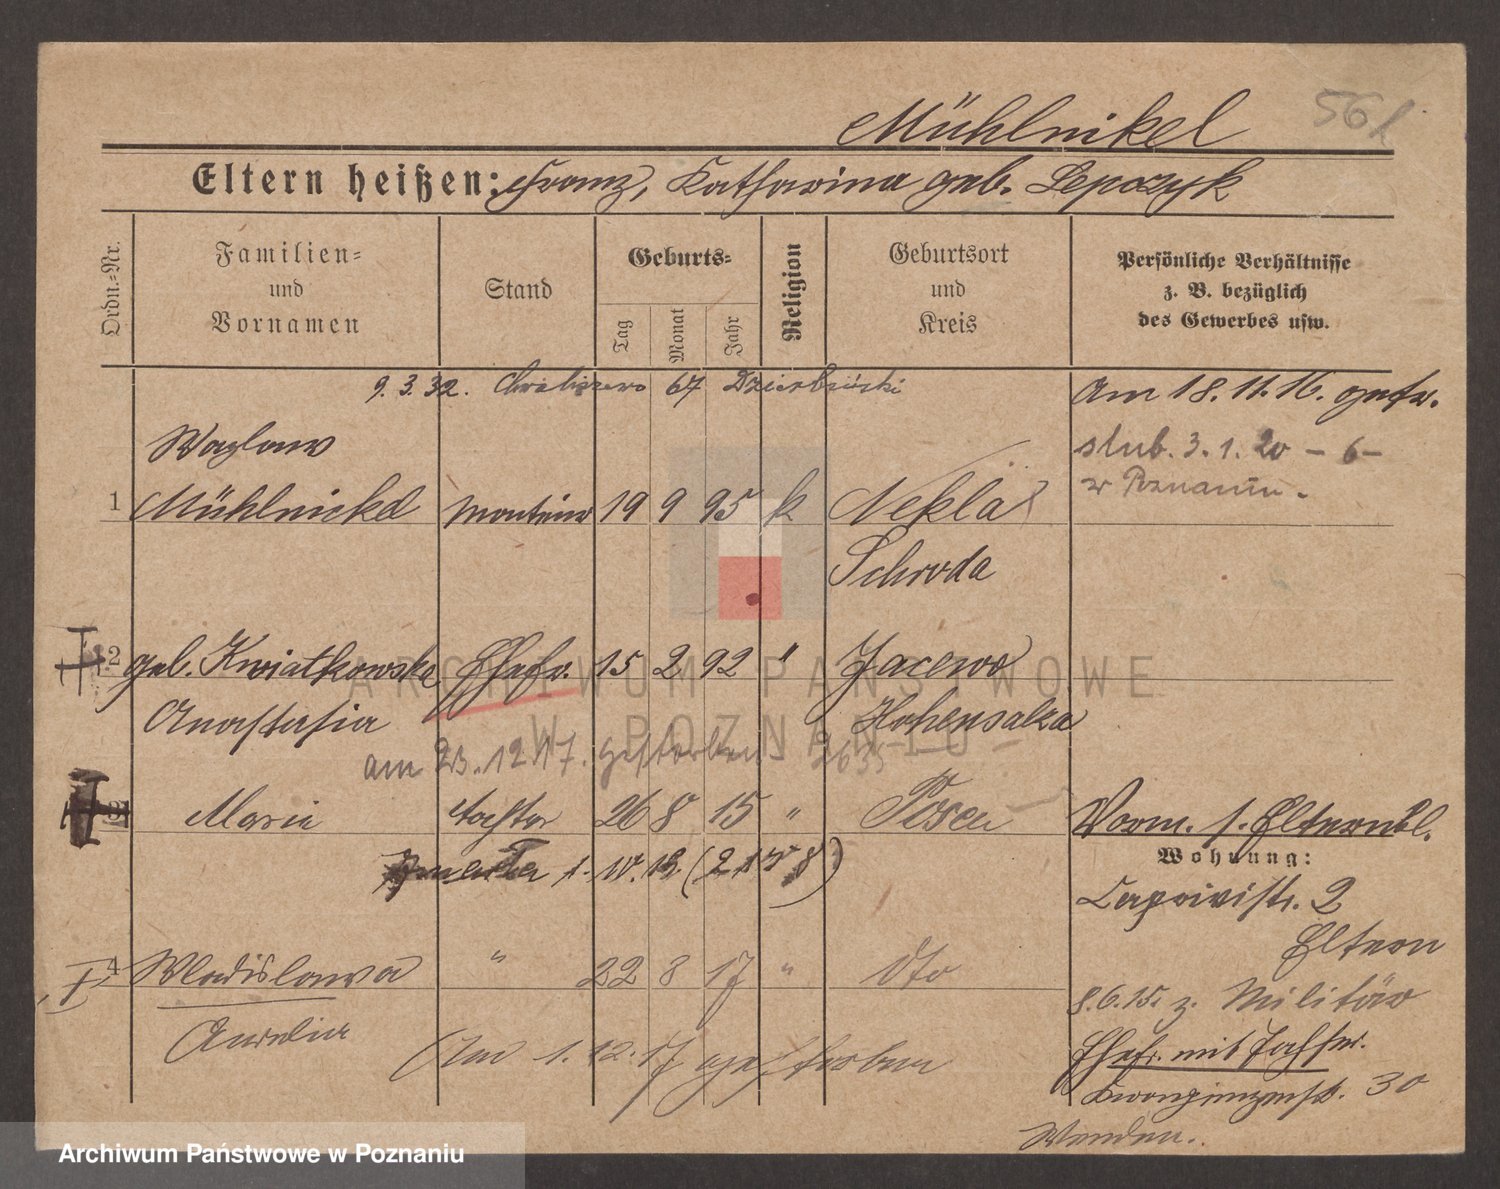 Mühlnikel
Eltern heißen: Franz, Katharina geb. Lepczyk
Ordn.-Nr.
Familien-
und
Vornamen
Stand
Geburts-
Tag
Monat
Jahr
Religion
Geburtsort
und
Kreis
Persönliche Verhältnisse
z. B. bezüglich
des Gewerbes usw.
9.3.32. 67
Am 18.11.16. getr.
Wazlaw
slub. 3.1.20 – 6 –
w Poznaniu.
1 Mühlnickel Monteur 19 9 95 k Nekla
Schroda
2 geb. Kwiatkowska Ehefr. 15 2 92 " Jacewo
Anastasia Hohensalza
am 23.12.17. gestorben. 2635
3 Maria Tochter 26 8 15 " Posen
Vorm. s. Elternbl.
Wohnung:
Caprivistr. 2
Eltern
4 Wladislawa " 22 8 17 " dto
8.6.15. z. Militär
Aurelia
Am 1.12.17 gestorben
Ehefr. mit Tochter.
Kronprinzenstr. 30
Wenden.
ARCHIWUM PAŃSTWOWE
W POZNANIU
Archiwum Państwowe w Poznaniu